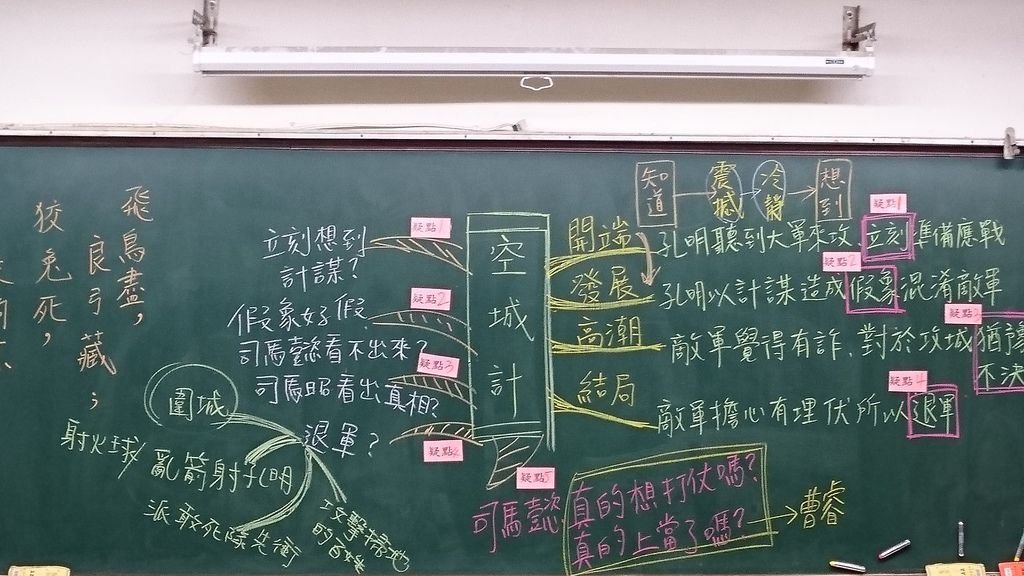 飛鳥盡，
良弓藏；
狡兔死，
知道
震撼
冷靜
想到
空城計
開端
孔明聽到大軍來攻，立刻準備應戰
疑點1
發展
孔明以計謀造成假象混淆敵軍
疑點2
高潮
敵軍覺得有詐，對於攻城猶豫
不決
疑點3
結局
敵軍擔心有埋伏所以退軍
疑點4
疑點1
立刻想到
計謀？
疑點2
假象好假
司馬懿看不出來？
疑點3
司馬昭看出真相？
退軍？
疑點4
疑點5
司馬懿
真的想打仗嗎？
真的上當了嗎？
曹睿
圍城
射火球
亂箭射孔明
派敢死隊先衝
攻擊掃地
的百姓